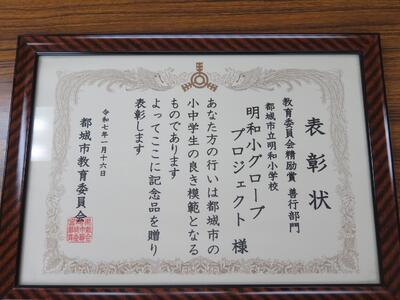 表彰状
教育委員会精励賞 善行部門
都城市立明和小学校
明和小グローブ
プロジェクト 様
あなた方の行いは都城市の
小中学生の良き模範となる
ものであります
よってここに記念品を贈り
表彰します
令和七年一月十六日
都城市教育委員会